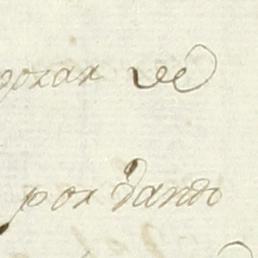 gozar de
por dando